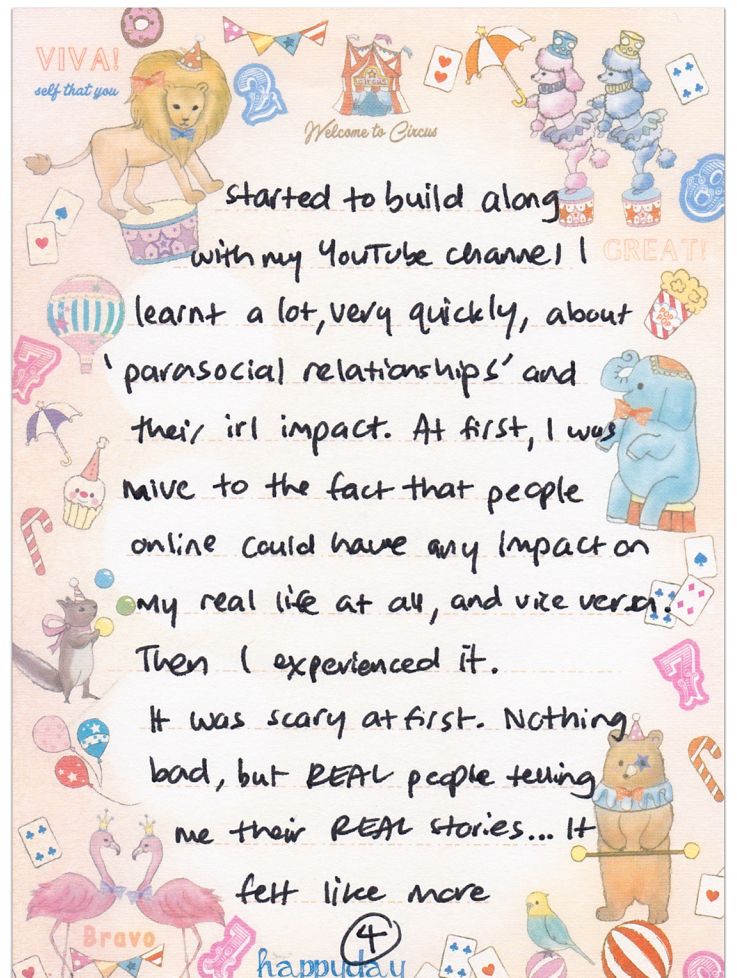 VIVA!
self that you
Welcome to Circus
GREAT!
started to build along
with my YouTube channel I
learnt a lot, very quickly, about
'parasocial relationships' and
their irl impact. At first, I was
naive to the fact that people
online could have any impact on
my real life at all, and vice versa.
Then I experienced it.
It was scary at first. Nothing
bad, but REAL people telling
me their REAL stories... It
felt like more
4
Bravo
happyday